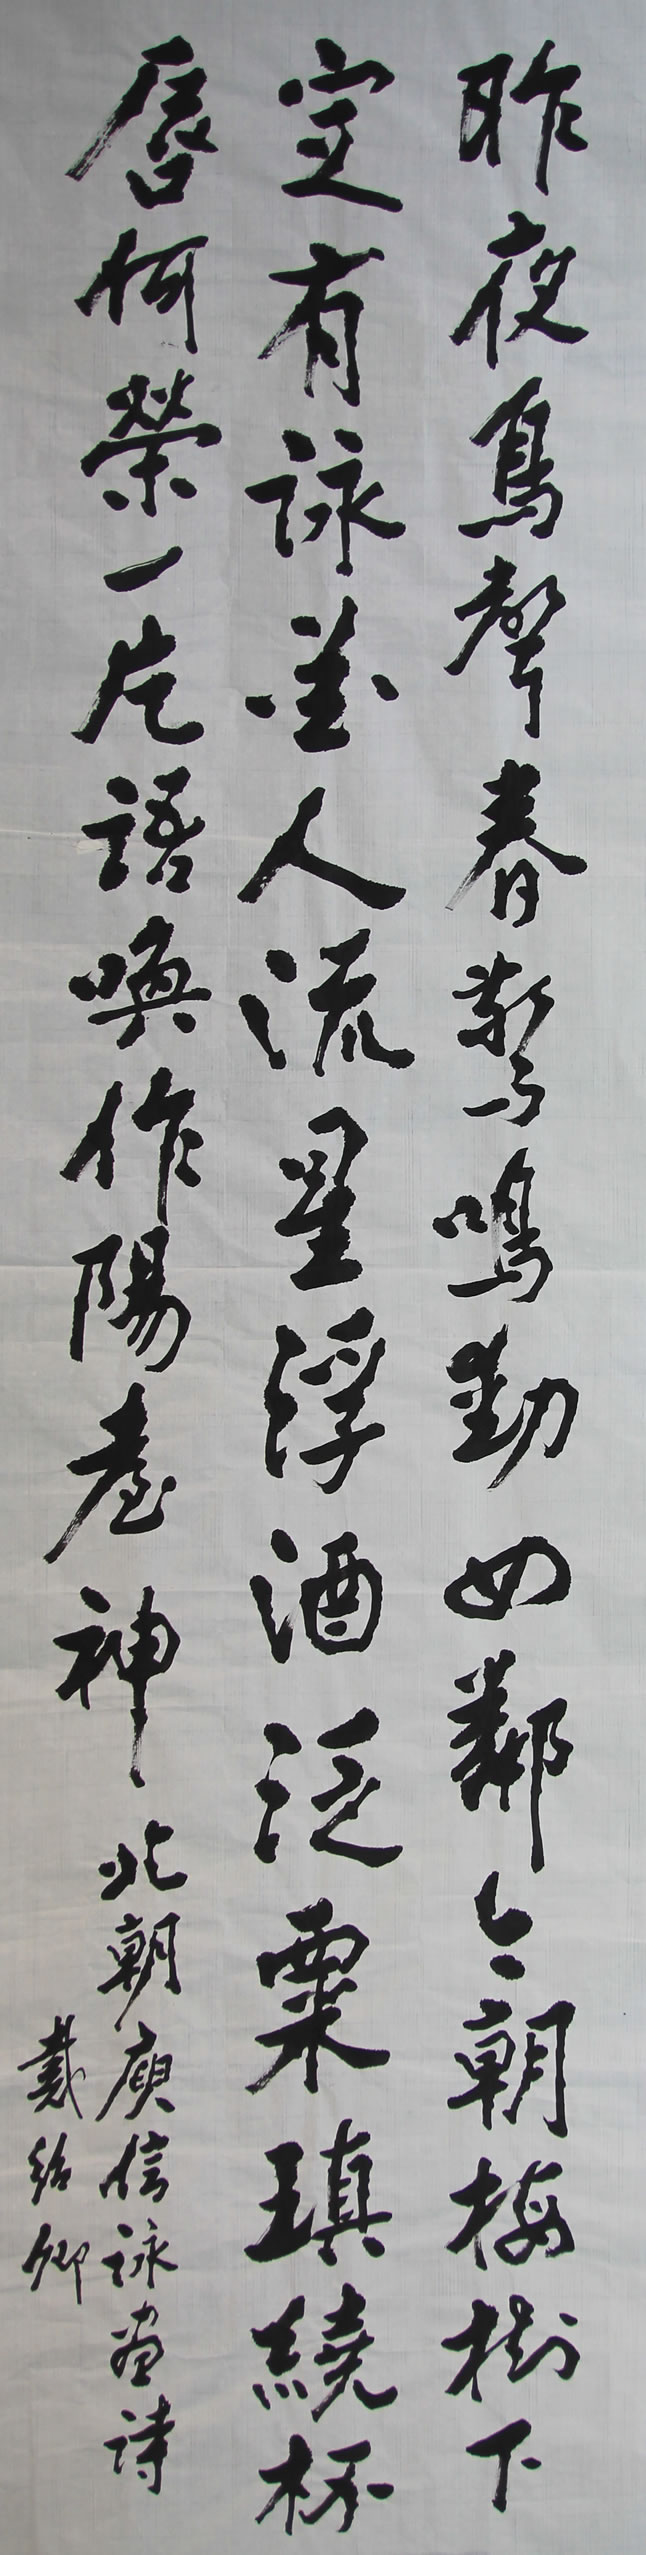 昨夜鳥聲春驚鳴動四鄰今朝梅樹下
定有詠花人流星浮酒泛粟瑱繞杯
唇何榮一片語喚作陽臺神
北朝庾信詠畫詩
戴紹卿